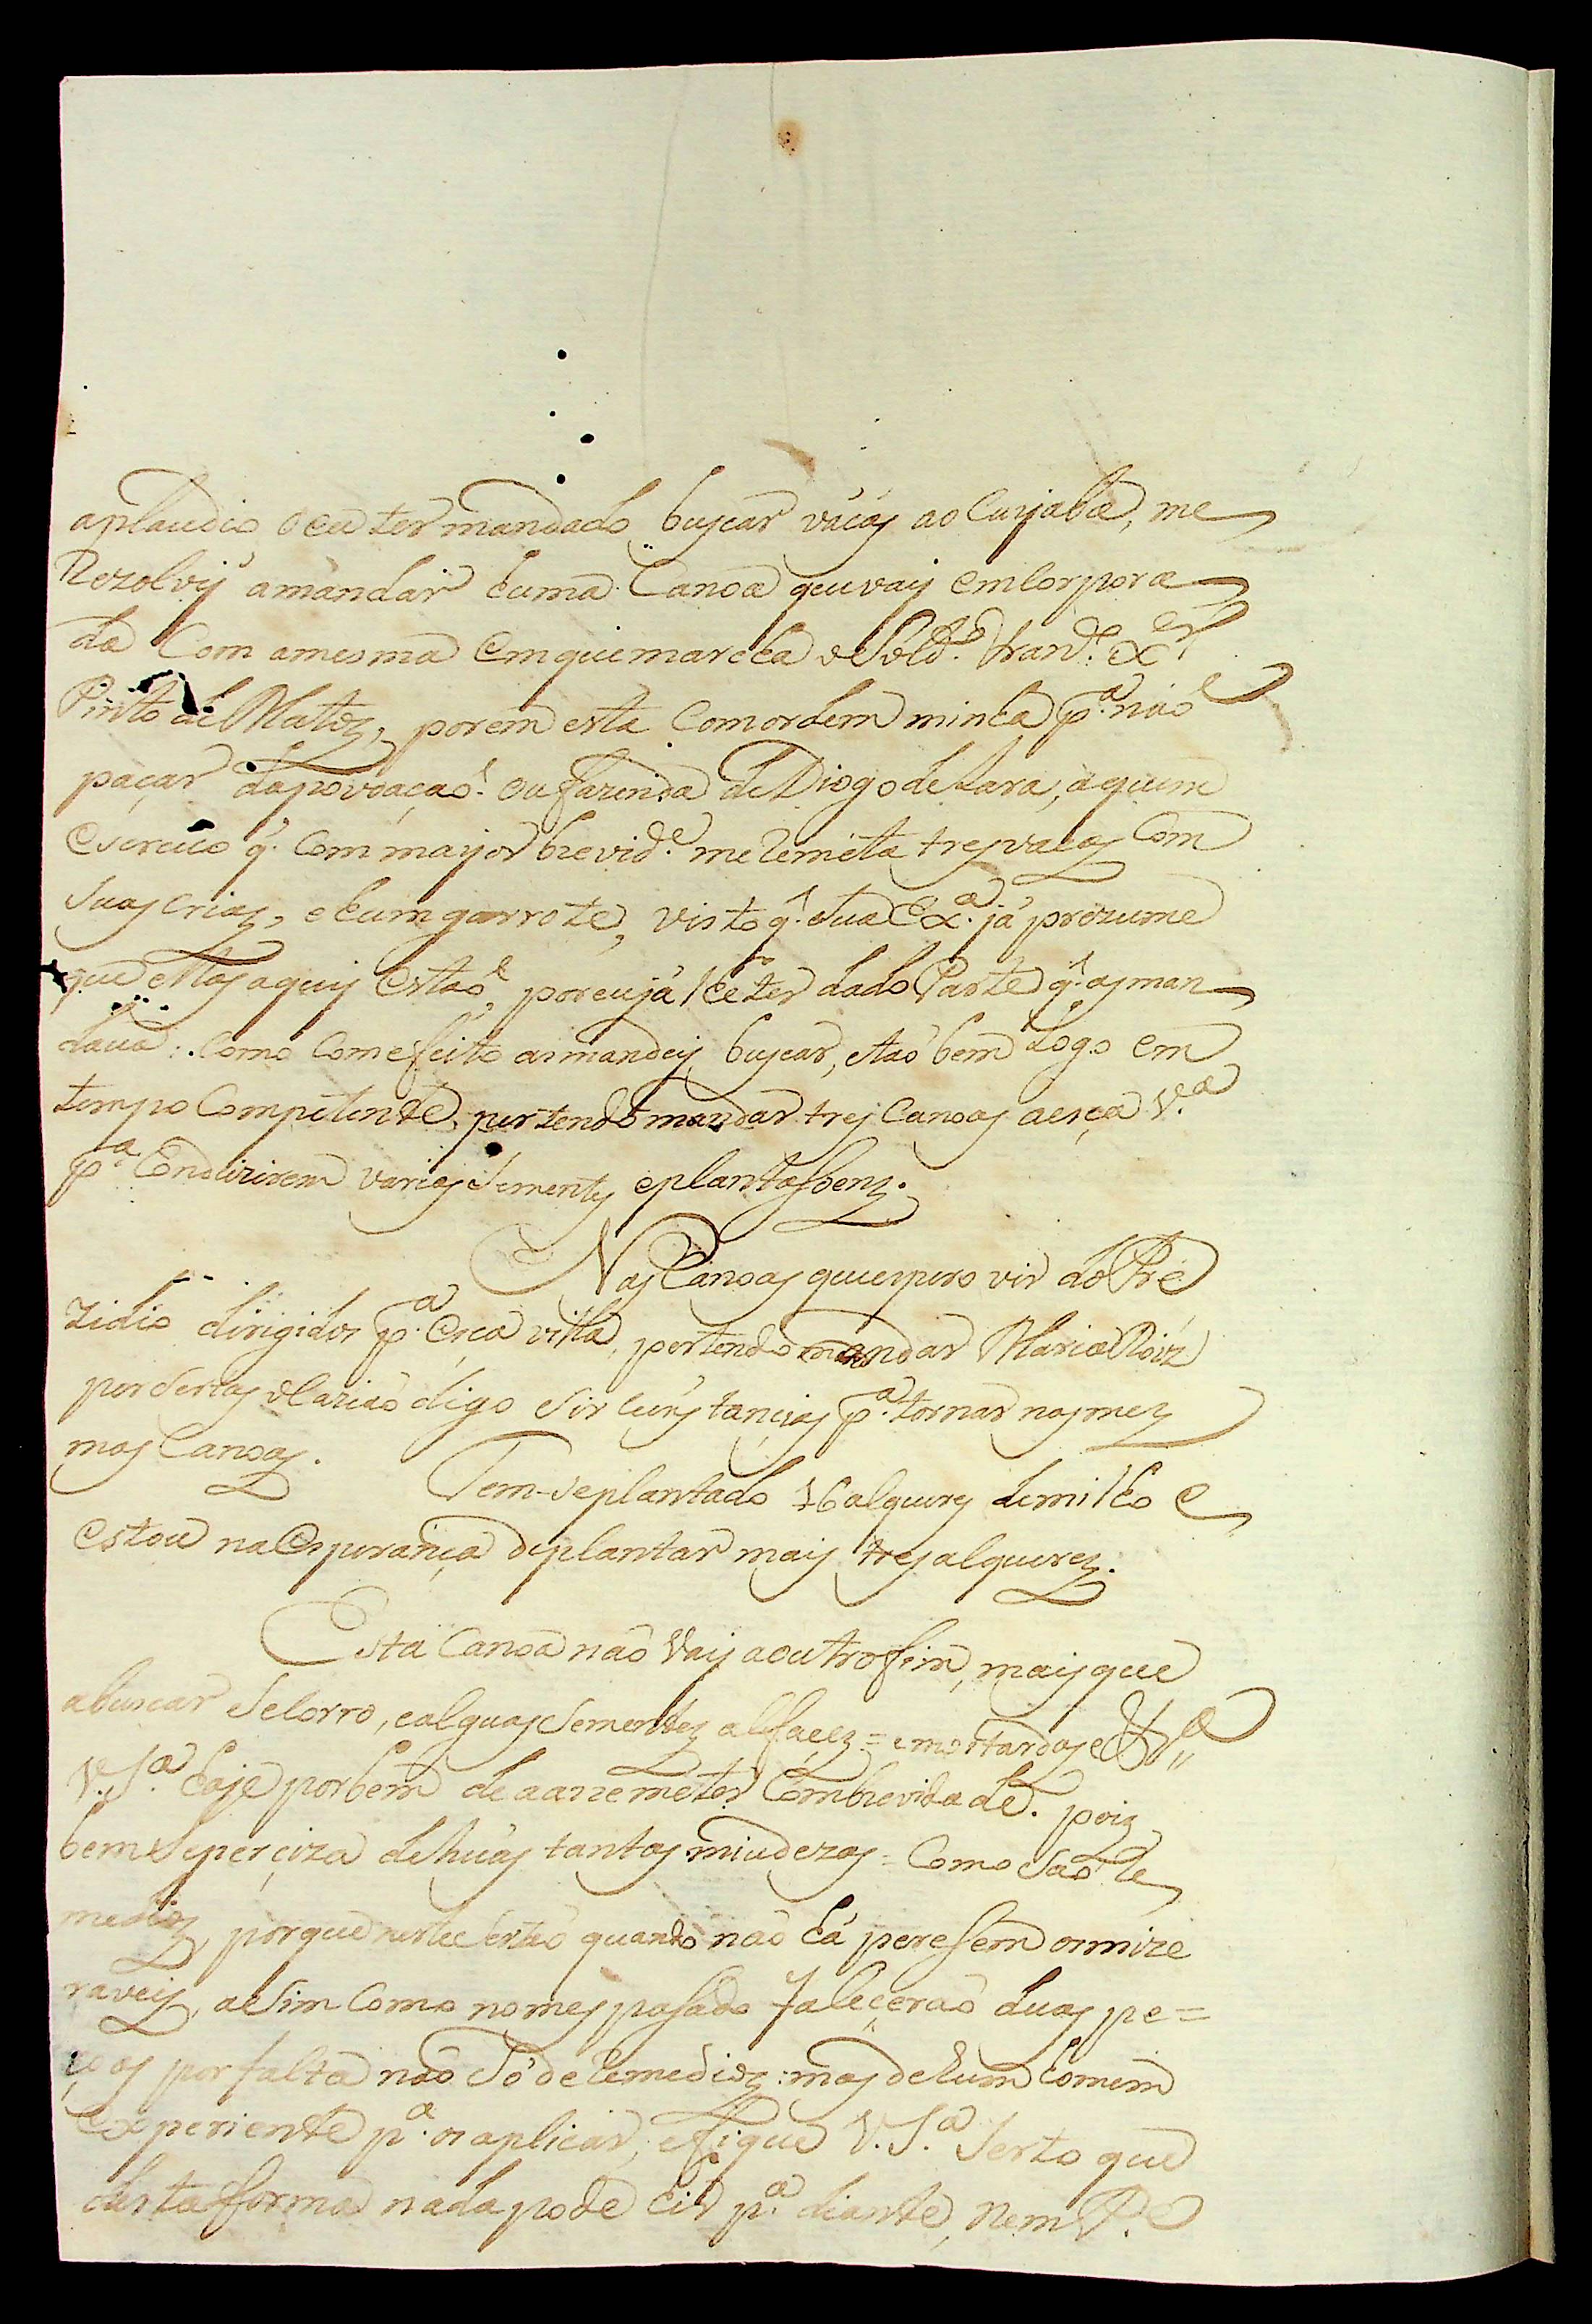 aplaudio o eu ter mandado buscar vácas ao Cuyabá, me
Rezolvÿ amandár huma Canoa que vaiy emCorpora
da Com amesma Em que marcha o Sold.º Fran.co X.er
Pinto de Mattoz, porem esta Com ordem minha p.ª naõ
paçar dapovoaçaõ. ou fazenda de Diogo de Lara, a quem
escrevo q. Com mayor brevid.e me remeta tres vacas Com
suas crias, e hum garrote, visto q. Sua Ex.ª já prezume
que ellas aquy Estaõ, por eu já lhe ter dado Parte q. as man
dava: Como Com efeito as mandey buscar, e taõ bem Logo em
tempo Competente, pertendo mandar tres Canoas a essa V.ª
p.ª Conduzirem varias sementes e plantas benz.
Nas Canoas que espero vir do Pre
zidio dirigidos p.ª Essa villa, pertendo mandar Maria Roiz
por sertas digo sircunstancias p.ª tornar nas mez
mas Canoas. Tem-se plantado 16 alqueres de milho e
estou na Esperança de plantar mais tres alquerez.
Esta Canoa naõ Vay a outro fim, mais que
abuscar Selorro, e alguas sementez alfaçez = e mostardas e &.ª
V. S.ª haje por bem de aarremeter Com brevidade. poiz
bem Se perciza de huãs tantas miudezas = Como Saõ re
medioz, porque neste Sertaõ quando naõ há peresem os mize
raveiz, asim Como no mes pasado faleceraõ duas pe=
ças por falta naõ Só de remedioz: mas de hum homem
Experiente p.ª os aplicar, e fique V. S.ª Serto que
desta forma nada pode hir p.ª diante, nem